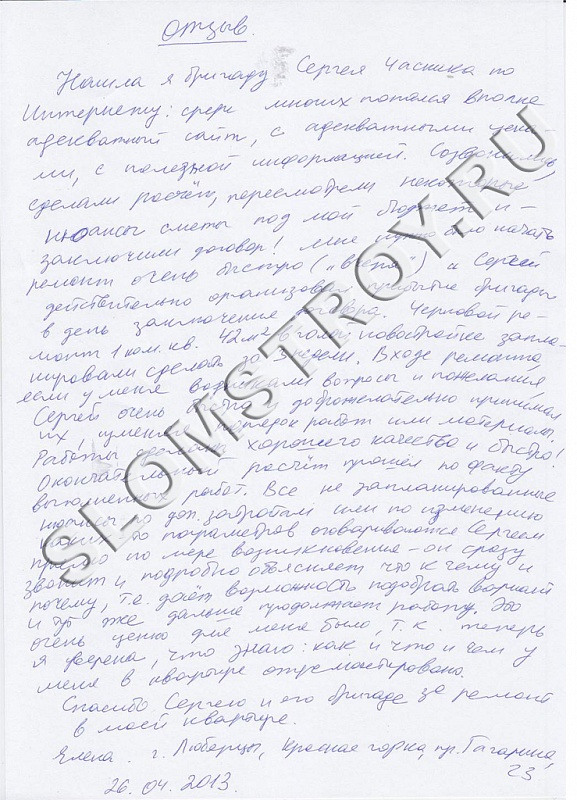 Отзыв.
Нашла я бригаду Сергея Часника по
Интернету: среди многих попался вполне
адекватный сайт, с адекватными цена-
ми, с полезной информацией. Созвонились,
сделали расчёт, пересмотрели некоторые
нюансы сметы под мой бюджет и -
заключили договор! Мне нужно было начать
ремонт очень быстро ("вчера") и Сергей
действительно организовал прибытие бригады
в день заключения договора. Черновой ре-
монт 1 ком. кв. 42м² в голой новостройке запла-
нировали сделать за 3 недели. В ходе ремонта,
если у меня возникали вопросы и пожелания,
Сергей очень быстро и доброжелательно принимал
их, изменяя порядок работ или материалы.
Работы сделаны хорошего качества и быстро!
Окончательный расчёт прошёл по факту
выполненных работ. Все не запланированные
нюансы по доп. затратам или по изменению
каких-то параметров оговариваются Сергеем
прямо по мере возникновения - он сразу
звонит и подробно объясняет что к чему и
почему, т.е. даёт возможность подобрать вариант
и тут же дальше продолжает работу. Это
очень ценно для меня было, т.к. теперь
я уверена, что знаю: как и что и чем у
меня в квартире отремонтировано.
Спасибо Сергею и его бригаде за ремонт
в моей квартире.
Елена. г. Люберцы, Красная горка, пр. Гагарина,
23
26.04.2013.
SLOMSTROY.RU